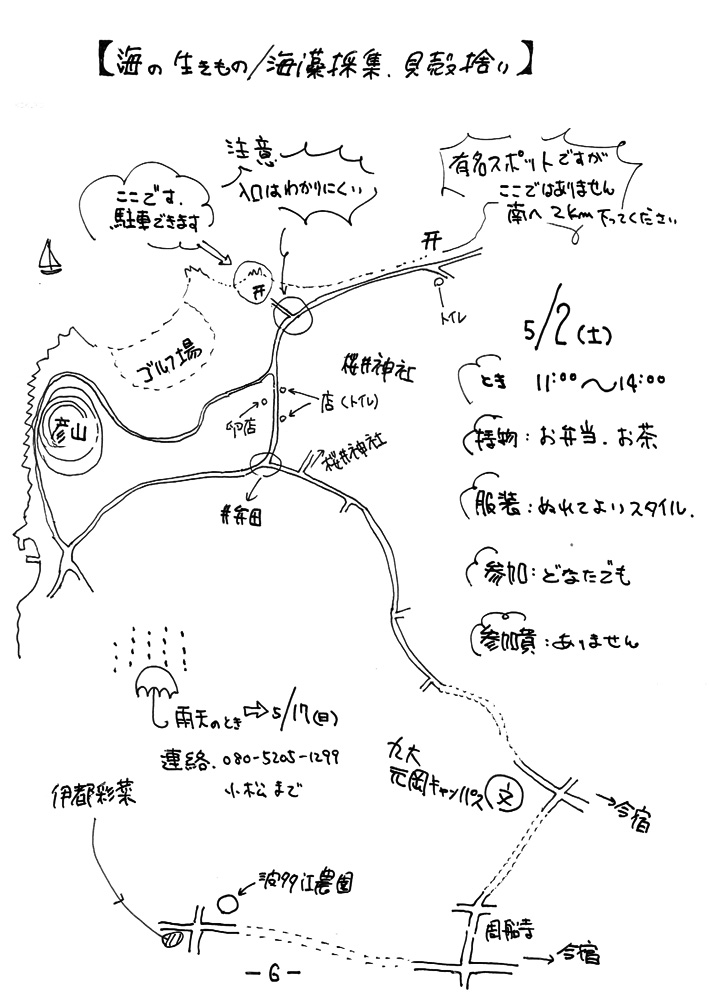 【海の生きもの/海藻採集、貝殻拾い】
注意
入口はわかりにくい
ここです、
駐車できます
有名スポットですが
ここではありません
南へ2km下ってください
トイレ
ゴルフ場
桜井神社
店(トイレ)
卯店
彦山
桜井神社
井牟田
5/2(土)
とき 11:00〜14:00
持物:お弁当、お茶
服装:ぬれてよいスタイル.
参加:どなたでも
参加費:ありません
雨天のとき⇨5/17(日)
連絡、080-5205-1299
小松まで
九大
元岡キャンパス
文
→今宿
伊都彩菜
波多江農園
周船寺
→今宿
-6-